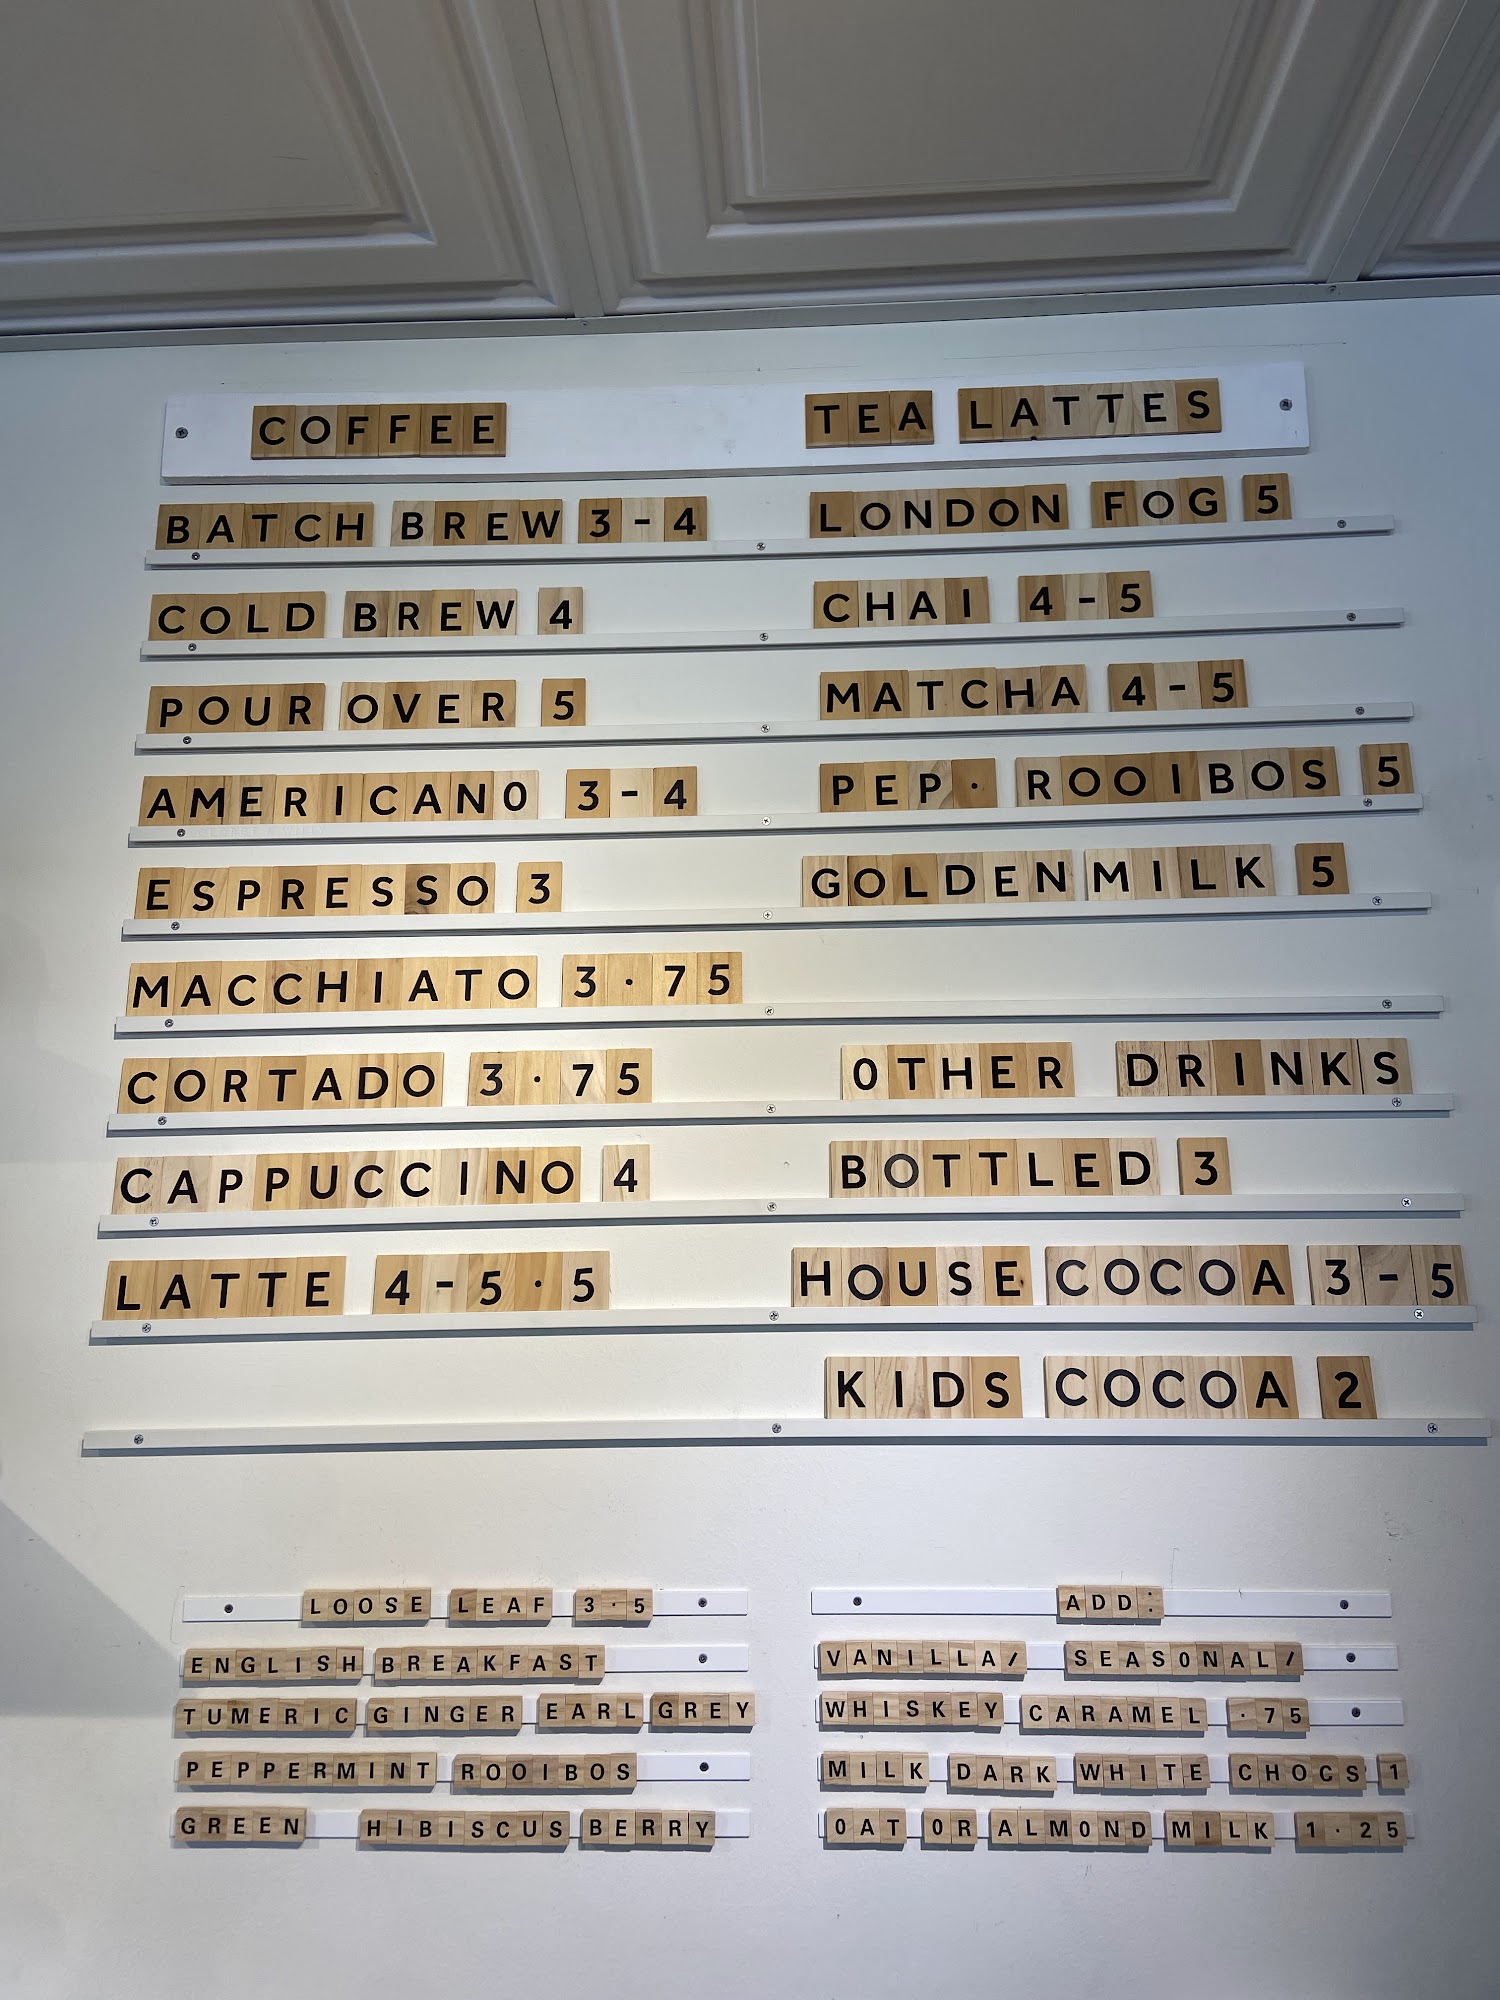 COFFEE
BATCH BREW 3-4
COLD BREW 4
POUR OVER 5
AMERICANO 3-4
ESPRESSO 3
MACCHIATO 3·75
CORTADO 3·75
CAPPUCCINO 4
LATTE 4-5·5
TEA LATTES
LONDON FOG 5
CHAI 4-5
MATCHA 4-5
PEP· ROOIBOS 5
GOLDENMILK 5
OTHER DRINKS
BOTTLED 3
HOUSE COCOA 3-5
KIDS COCOA 2
LOOSE LEAF 3·5
ENGLISH BREAKFAST
TUMERIC GINGER EARL GREY
PEPPERMINT ROOIBOS
GREEN HIBISCUS BERRY
ADD:
VANILLA/ SEASONAL/
WHISKEY CARAMEL ·75
MILK DARK WHITE CHOCS 1
OAT OR ALMOND MILK 1·25